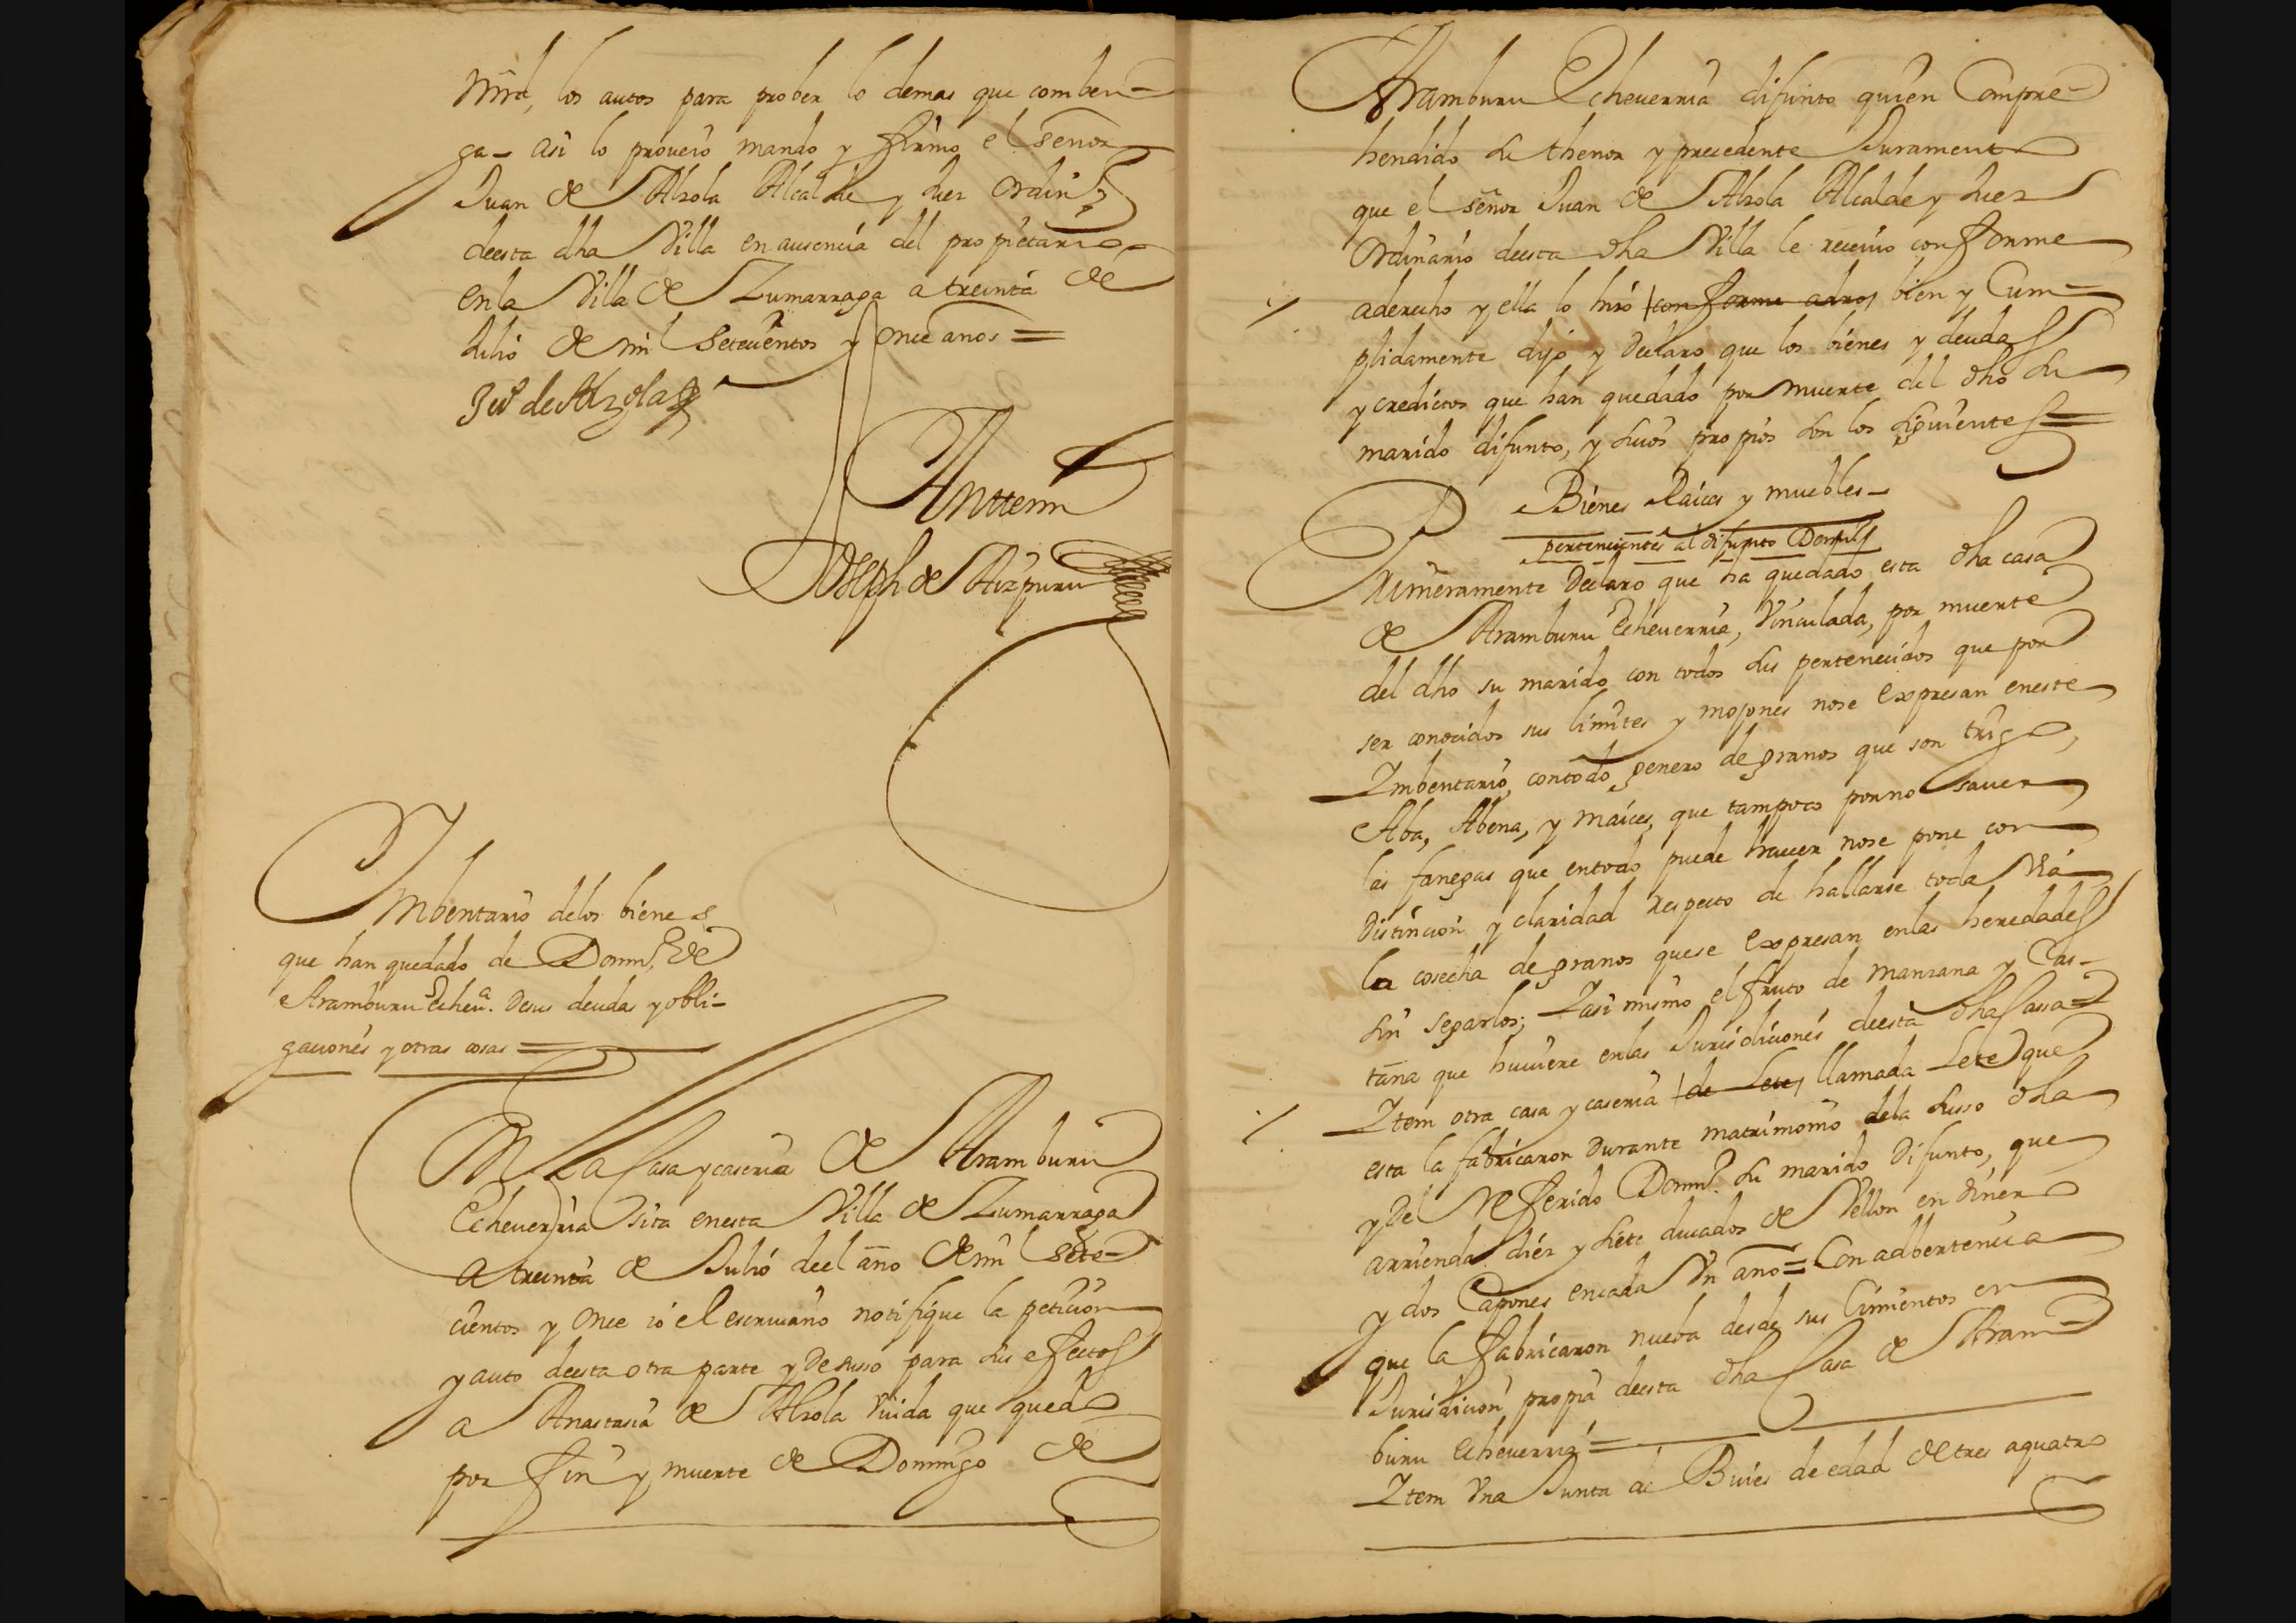 los autos para prober lo demas que comben=
ga - asi lo proueio mando y firmo el señor
Juan de Alzola Alcalde y Juez ordinº
deesta dha Villa en ausencia del propietario
en la Villa de Zumarraga a treinta de
Julio de mil setecientos y once anos =
Juº de Alzola
Anttemi
Joseph de Aizpuru
Imbentario delos bienes
que han quedado de Domº de
Aramburu Echeuª. desus deudas y obli-
gaciones y otras cosas =
En La Casa y caseria de Aramburu
Echeuerria sita enesta Villa de Zumarraga
a treinta de Julio deel año de mil sete-
cientos y once io el escriuano notifique la peticion
y auto deesta otra parte y de suso para sus efectos
a Anastasia de Alzola Viuda que quedo
por fin y muerte de Domingo de
Aramburu Echeuerria difunto quien Compre-
hendido su thenor y precedente Juramento
que el señor Juan de Alzola Alcalde y Juez
Ordinario deesta dha Villa le receuio conforme
aderecho y ella lo hizo conforme adro bien y Cum=
plidamente dijo y declaro que los bienes y deudas
y credictos que han quedado por muerte del dho su
marido difunto, y suios propios son los siguientes =
Bienes Raices y muebles -
pertenecientes al difunto
Primeramente Declaro que ha quedado esta dha casa
de Aramburu Echeuerria, Vinculada, por muerte
del dho su marido con todos sus pertenecidos que por
ser conocidos sus limites y mojones nose expresan eneste
Imbentario, contodo genero de granos que son trigo,
Aba, Abena, y maices, que tampoco porno sauer
las fanegas que entodo puede hauer nose pone con
distincion y claridad respecto de hallarse toda Via
la cosecha de granos quese expresan enlas heredades
sin segarlos; Iasi mismo el fruto de manzana y Cas-
taña que huuiere enlas Jurisdiciones deesta dha Cassa =
Item otra casa y caseria de Lete llamada Lete que
esta la fabricaron durante matrimonio dela suso dha
y del Referido Domº su marido difunto, que
arrienda diez y siete ducados de Vellon en dinero
y dos Capones encada Vn ano = Con adbertencia
que la fabricaron nueba desde sus Cimientos en
Jurisdicion propia deesta dha Casa de Aram-
buru Echeuerria =
Item Vna Junta de Buies de edad de tres aquatro